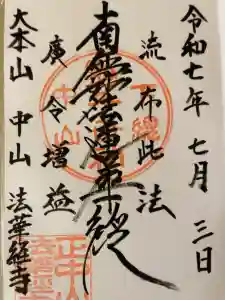 令和七年 七月 三日
流布此法
南無妙法蓮華経
廣令増益
大本山 中山 法華経寺